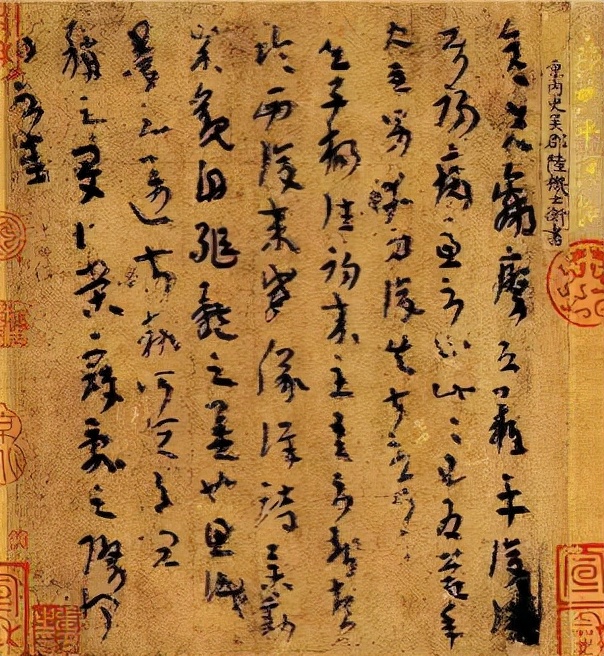 原內史吳郡陸機士衡書
彦先羸瘵恐難平復往屬
初病慮不止此此已為慶承
使唯男幸為復失前憂耳
子楊往初來主吾不能盡
臨西復來威儀詳跱舉動
成觀自軀體之美也思識
量之邁前執所恒有宜
稱之夏榮寇亂之際聞
問不悉